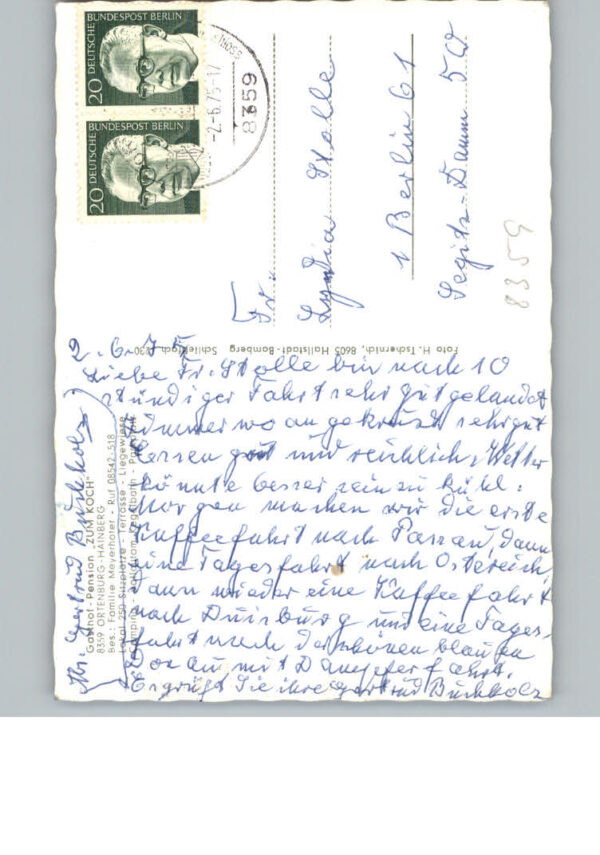 DEUTSCHE BUNDESPOST BERLIN
20
DEUTSCHE BUNDESPOST BERLIN
20
8359
-2.-6.75-17
Fr.
Lydia Stolle
1 Berlin 61
Segitz-Damm 50
8359
Foto H. Tschernich, 8605 Hallstadt-Bamberg Schließfach
Gasthof-Pension "ZUM KOCH"
8359 ORTENBURG-HAINBERG
Bes.: Familie Meyerhofer - Ruf 08542-518
Lokal 250 Sitzplätze - Terrasse - Liegewiese
Camping - Kegelbahn
2.6.75
Liebe Fr. Stolle bin nach 10
stündiger Fahrt sehr gut gelandet
Zimmer wo an gekreuzt sehr gut
Essen gut und reichlich, Wetter
könnte besser sein zu kühl.
Morgen machen wir die erste
Kaffeefahrt nach Passau, dann
eine Tagesfahrt nach Östereich,
dann wieder eine Kaffeefahrt
nach Duisburg und eine Tages-
fahrt nach der schönen blauen
Donau mit Dampferfahrt.
Es grüßt Sie ihre Gertrud Buchholz
Abs. Gertrud Buchholz